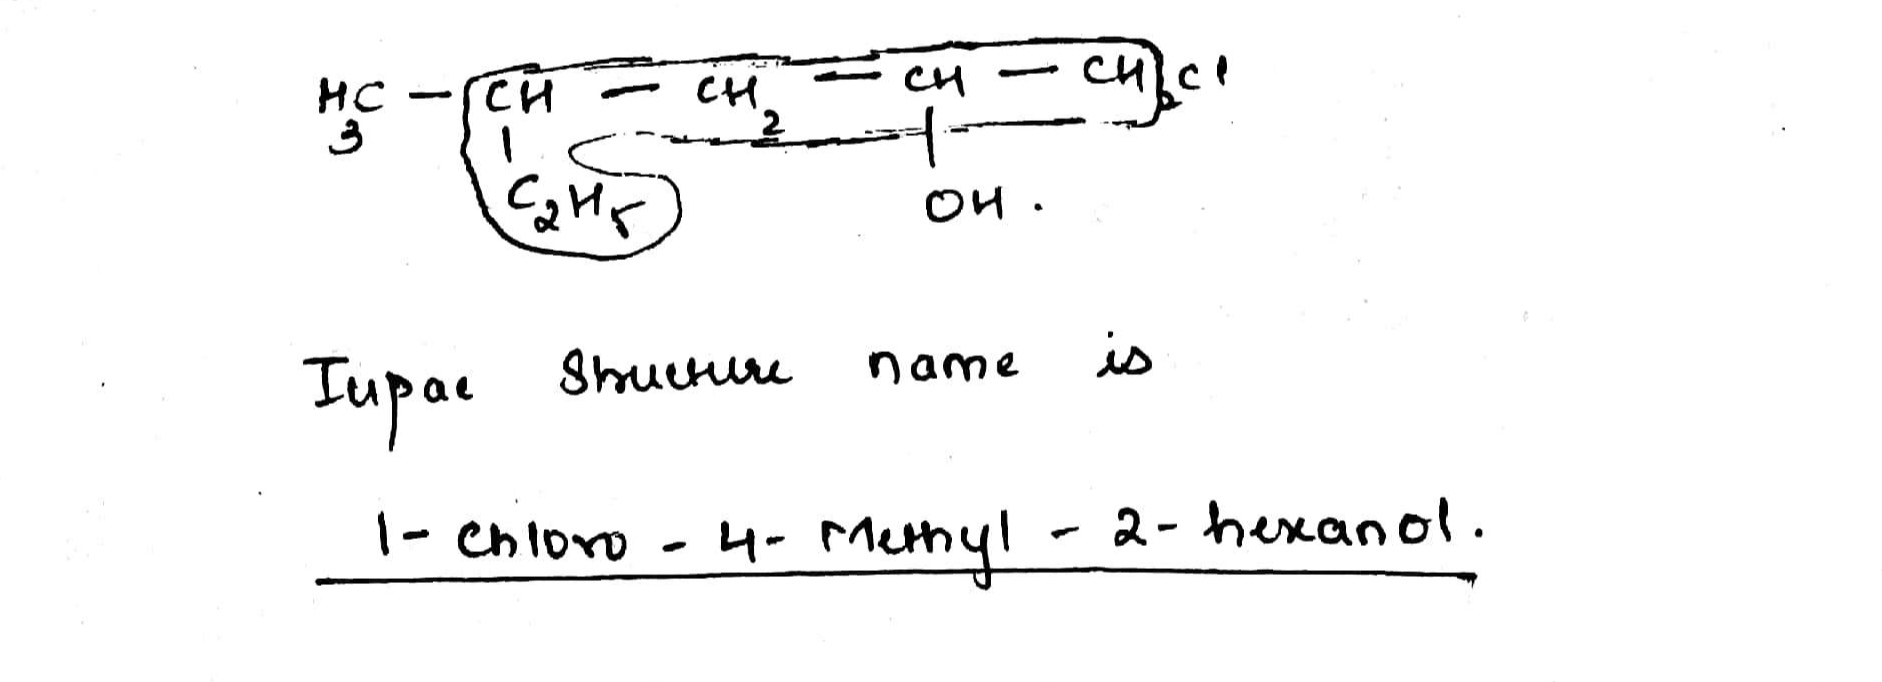 H₃C - CH - CH₂ = CH - CH₂Cl
C₂H₅ OH.
Iupac Structure name is
1- chloro - 4- Methyl - 2- hexanol.